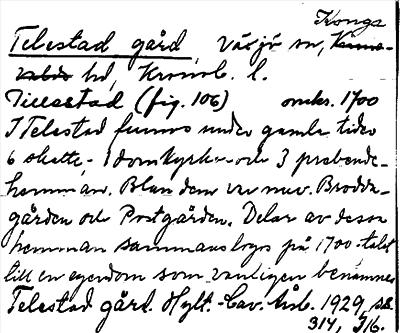 Konga
Telestad gård, Växjö sn, Kinne-
valds hd, Kronob. l.
Tillestad (fig. 106) omkr. 1700
I Telestad funnos under gamla tider
6 skatte-, 1 domkyrko- och 3 prebende-
hemman. Bland dem voro Brodda-
gården och Postgården. Delar av dessa
hemman sammanslogs på 1700-talet
till en egendom som vanligen benämnes
Telestad gård. Hylt.-Cav. Årsb. 1929, sid.
314, 316.